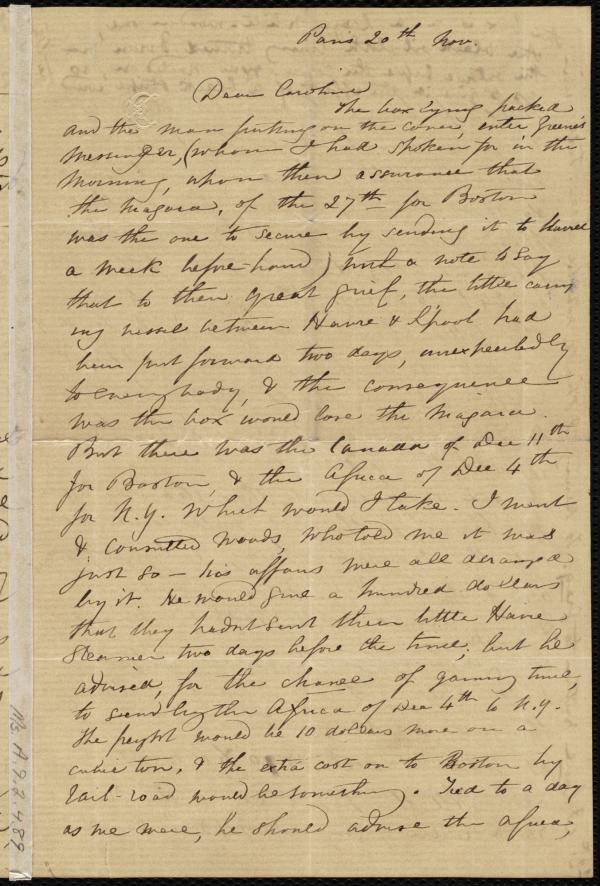 Paris 20th Nov.
Dear Caroline
The box lying packed
and the man putting on the cover, enter Greene's
Messenger, (whom I had spoken for in the
Morning, upon their assurance that
the Niagara, of the 27th for Boston
was the one to secure by sending it to Havre
a week before-hand) with a note to say
that to their great grief, the little carry
ing vessel between Havre & L'pool had
been put forward two days, unexpectedly
to everybody, & the consequence
was the box would lose the Niagara.
But there was the Canada of Dec 11th
for Boston, & the Africa of Dec 4th
for N.Y. What would I take. I went
& consulted Woods, who told me it was
just so – his affairs were all deranged
by it. He would give a hundred dollars
that they hadn't sent their little Havre
Steamer two days before the time; but he
advised, for the chance of gaining time,
to send by the Africa of Dec 4th to N.Y.
The freight would be 10 dollars more on a
cubic ton, & the extra cost on to Boston by
rail-road would be something. Tied to a day
as we were, he should advise the Africa,
Ms. A.9.2. 4.89